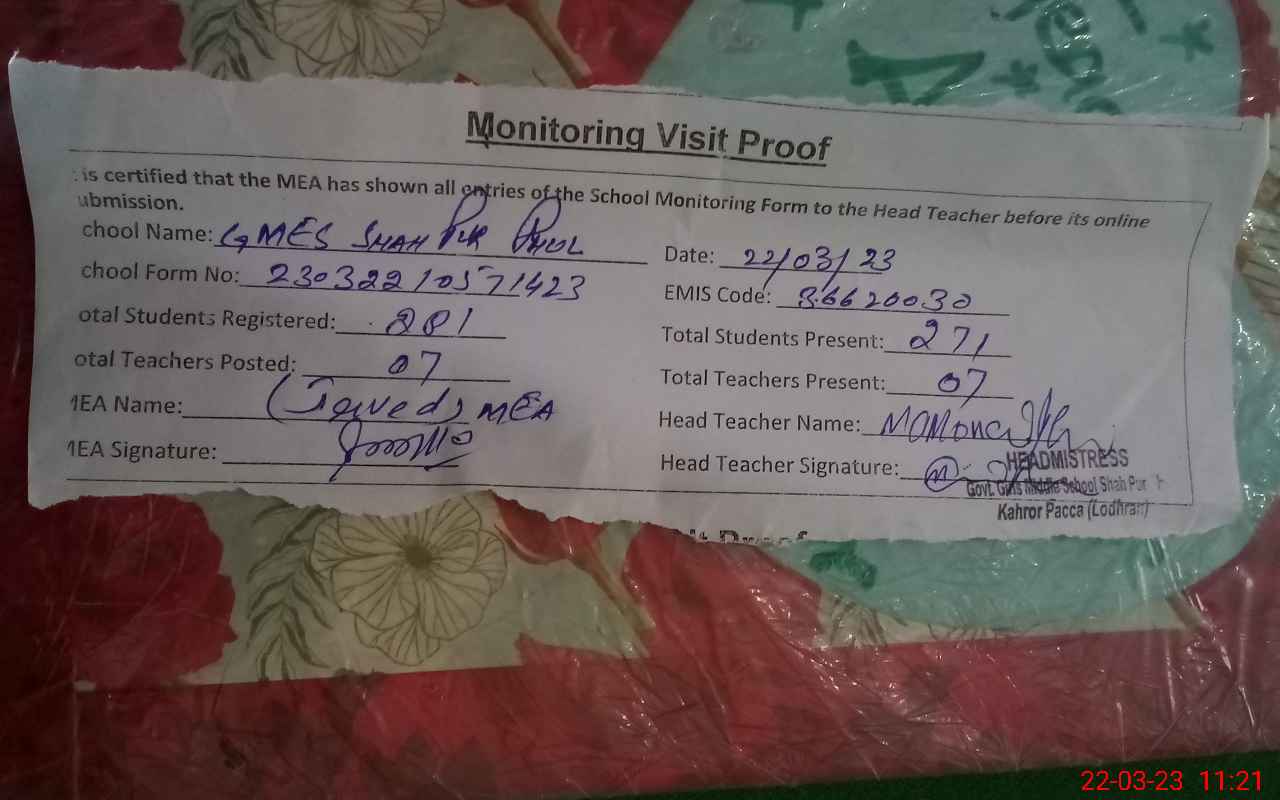 Monitoring Visit Proof
is certified that the MEA has shown all entries of the School Monitoring Form to the Head Teacher before its online
ubmission.
chool Name: GMES SHAH PUR PHUL
Date: 22/03/23
chool Form No: 23032210571423
EMIS Code: 36620030
otal Students Registered: 281
Total Students Present: 271
otal Teachers Posted: 07
Total Teachers Present: 07
MEA Name: (Javed) MEA
Head Teacher Name: Mamona
MEA Signature:
Head Teacher Signature:
HEADMISTRESS
Govt. Girls Middle School Shah Pur
Kahror Pacca (Lodhran)
it Proof
22-03-23 11:21